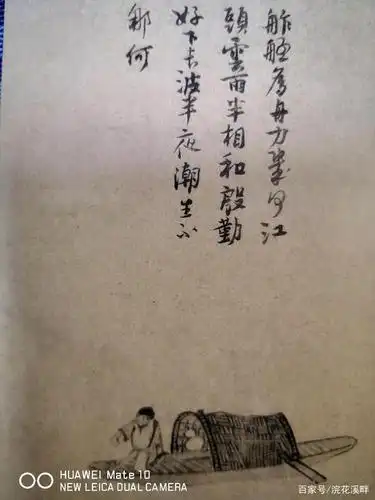 舴艋為舟力幾多江
頭雲雨半相和殷勤
好下長波半夜潮生不
那何
HUAWEI Mate 10
NEW LEICA DUAL CAMERA
百家号/浣花溪畔